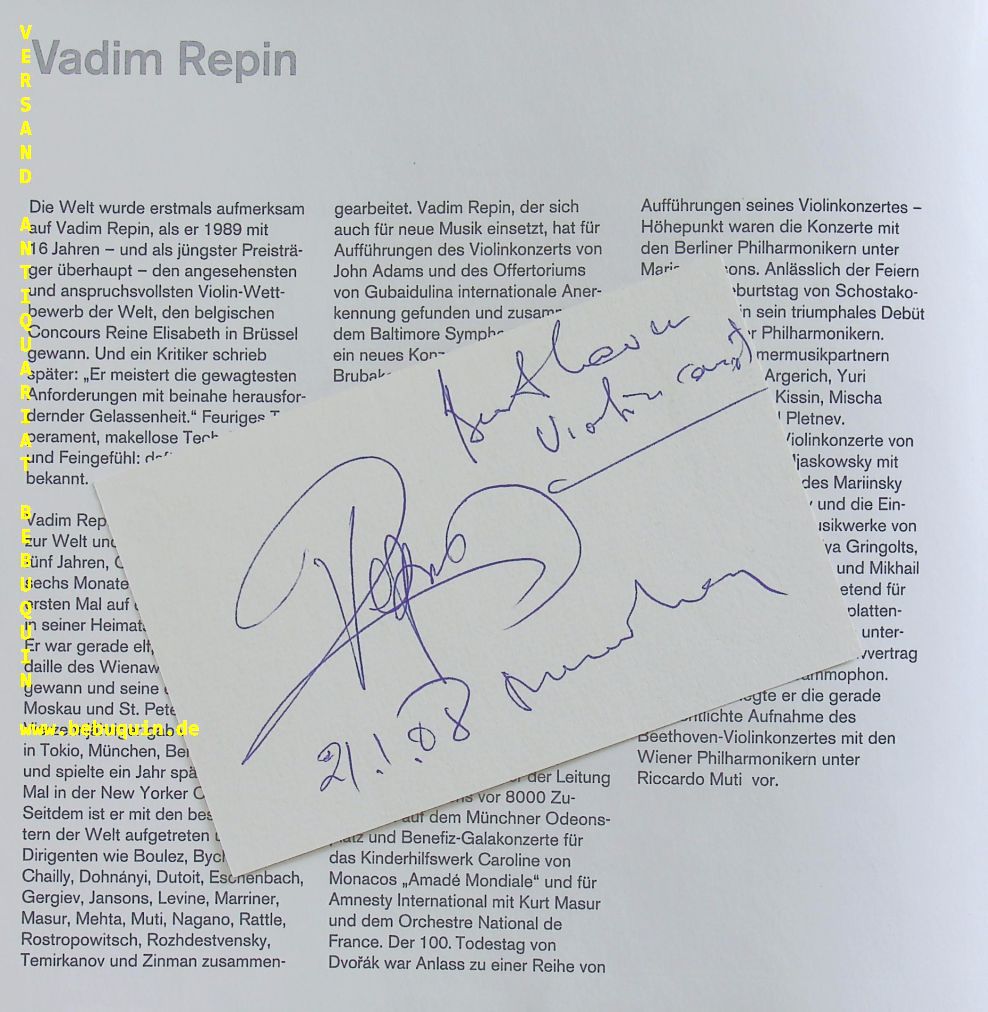 VERSAND ANTIQUARIAT BEBUQUIN
www.bebuquin.de
Vadim Repin
Die Welt wurde erstmals aufmerksam
auf Vadim Repin, als er 1989 mit
16 Jahren – und als jüngster Preisträ-
ger überhaupt – den angesehensten
und anspruchsvollsten Violin-Wett-
bewerb der Welt, den belgischen
Concours Reine Elisabeth in Brüssel
gewann. Und ein Kritiker schrieb
später: „Er meistert die gewagtesten
Anforderungen mit beinahe herausfor-
dernder Gelassenheit.“ Feuriges
perament, makellose
und Feingefühl:
bekannt.
Vadim Rep
zur Welt und
fünf Jahren,
sechs Monate
ersten Mal auf
in seiner Heimat
Er war gerade elf,
daille des Wienaw
gewann und seine
Moskau und St. Pete
in Tokio, München, Be
und spielte ein Jahr spä
Mal in der New Yorker C
Seitdem ist er mit den bes
tern der Welt aufgetreten
Dirigenten wie Boulez, Byc
Chailly, Dohnányi, Dutoit, Eschenbach,
Gergiev, Jansons, Levine, Marriner,
Masur, Mehta, Muti, Nagano, Rattle,
Rostropowitsch, Rozhdestvensky,
Temirkanov und Zinman zusammen-
gearbeitet. Vadim Repin, der sich
auch für neue Musik einsetzt, hat für
Aufführungen des Violinkonzerts von
John Adams und des Offertoriums
von Gubaidulina internationale Aner-
kennung gefunden und zusam
dem Baltimore Sympho
ein neues Kon
Brubak
der Leitung
ns vor 8000 Zu-
auf dem Münchner Odeons-
platz und Benefiz-Galakonzerte für
das Kinderhilfswerk Caroline von
Monacos „Amadé Mondiale“ und für
Amnesty International mit Kurt Masur
und dem Orchestre National de
France. Der 100. Todestag von
Dvořák war Anlass zu einer Reihe von
Aufführungen seines Violinkonzertes –
Höhepunkt waren die Konzerte mit
den Berliner Philharmonikern unter
Maris ons. Anlässlich der Feiern
burtstag von Schostako-
n sein triumphales Debüt
r Philharmonikern.
mermusikpartnern
Argerich, Yuri
Kissin, Mischa
Pletnev.
Violinkonzerte von
jaskowsky mit
des Mariinsky
und die Ein-
usikwerke von
ya Gringolts,
und Mikhail
etend für
platten-
unter-
vvertrag
ammophon.
gte er die gerade
ntlichte Aufnahme des
Beethoven-Violinkonzertes mit den
Wiener Philharmonikern unter
Riccardo Muti vor.
Violin
Repin
21.1.08